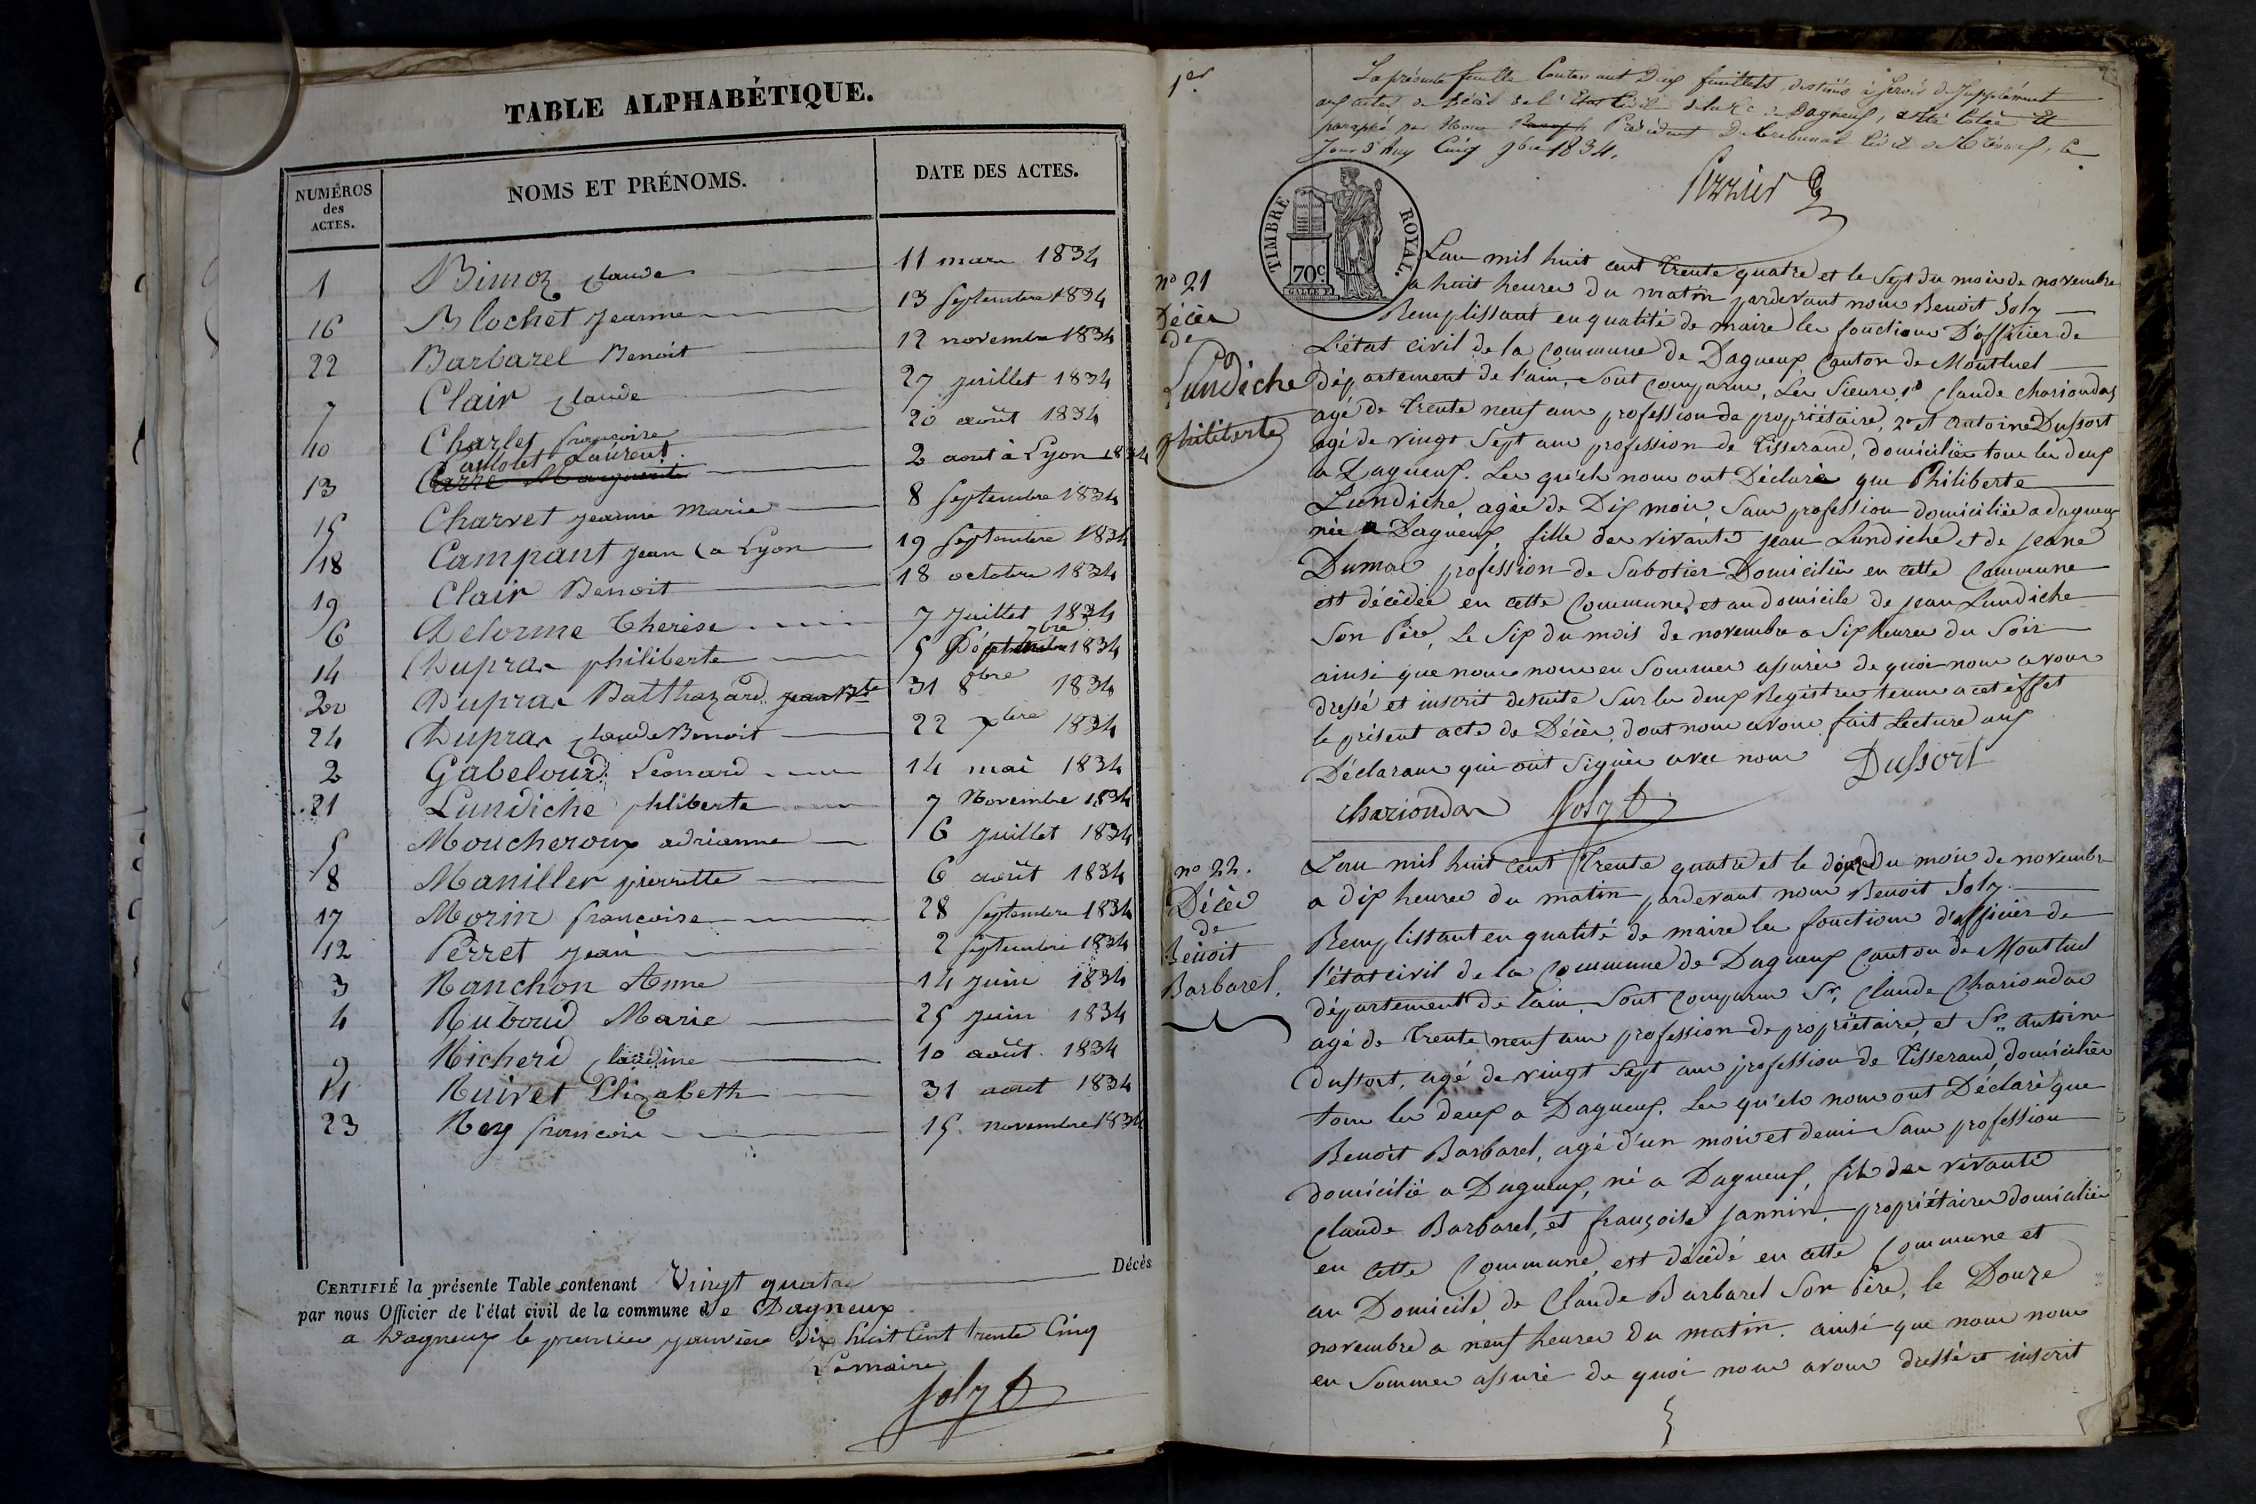 TABLE ALPHABÉTIQUE.
NUMÉROS des ACTES. NOMS ET PRÉNOMS. DATE DES ACTES.
1 Bimoz Claude 11 mars 1834
16 Blochet Jeanne 13 Septembre 1834
22 Barbarel Benoit 12 novembre 1834
7 Clair Claude 27 juillet 1834
10 Charlet francoise 20 août 1834
13 Laurent 2 aout à Lyon 1834
15 Charvet jeanne Marie 8 Septembre 1834
18 Campant jean (a Lyon 19 Septembre 1834
19 Clair Benoit 18 octobre 1834
6 Delorme Therèse 7 juillet 1834
14 Dupras philiberte 5 7bre 1834
20 Dupras Balthazard 31 8bre 1834
24 Dupras Claude Benoit 22 xbre 1834
2 Gabeloud Leonard 14 mai 1834
21 Lundiche philiberte 7 Novembre 1834
5 Moucheroux adrianne 6 juillet 1834
8 Maniller pierrette 6 août 1834
17 Morin francoise 28 Septembre 1834
12 Perret jean 2 septembre 1834
3 Ranchon Anne 14 juin 1834
4 Ruboud Marie 25 juin 1834
9 Richerd Claudine 10 août 1834
11 Ruivet Elizabeth 31 aout 1834
23 Rey francois 15 novembre 1834
CERTIFIÉ la présente Table contenant Vingt quatre Décès
par nous Officier de l'état civil de la commune de Dagneux
a Dagneux le premier janvier Dix huit Cent trente Cinq
Le maire
Joly B
1er
La présente feuille Contenant Deux feuillets destinés à Servir de Supplément
aux actes de Décès de l'Etat Civil de la Cne de Dagneux, a été cotée et
paraphé par Nous Président du tribunal Civil de Trévoux, ce
Jour d'huy Cinq 9bre 1834.
TIMBRE ROYAL.
70c
n° 21
Décès
de
Lundiche
philiberte
L'an mil huit cent trente quatre et le Sept du mois de novembre
a huit heures du matin pardevant nous Benoit Joly
Remplissant en qualité de maire les fonctions D'officier de
L'état civil de la Commune de Dagneux Canton de Montluel
département de l'ain, Sont Comparus, Les Sieurs 1° Claude Chariondas
agé de trente neuf ans profession de propriétaire, 2° et Antoine Dussort
agé de vingt Sept ans profession de Tisserand, domiciliés tous les deux
a Dagneux. Les qu'els nous ont Déclaré que Philiberte
Lundiche, agée de Dix mois Sans profession domiciliée a dagneux
née a Dagneux, fille des vivants jean Lundiche et de jeane
Dumas profession de Sabotier Domiciliés en cette Commune
est décédée en cette Commune, et au domicile de jean Lundiche
Son Père, Le Six du mois de novembre a Six heures du Soir
ainsi que nous nous en Sommes assurés de quoi nous avons
dressé et inscrit desuite Sur les deux Registres tenus a cet èffet
le présent acte de Décès, dont nous avons fait Lecture aux
Déclarans qui ont Signés avec nous Dussort
Chariondas Joly B
n° 22.
Décès
de
Benoit
Barbarel.
L'an mil huit Cent Trente quatre et le douze du mois de novembre
a dix heures du matin pardevant nous Benoit Joly
Remplissant en qualité de maire les fonctions d'officier de
l'état civil de la Commune de Dagneux Canton de Montluel
département de l'ain, Sont Comparus Sr. Claude Chariondas
agé de Trente neuf ans profession de propriétaire, et Sr. Antoine
Dussort, agé de vingt Sept ans profession de Tisserand, domiciliés
tous les deux a Dagneux. Les qu'els nous ont Déclaré que
Benoit Barbarel, agé d'un mois et demi Sans profession
domicilié a Dagneux, né a Dagneux, fils des vivants
Claude Barbarel, et françoise jannin, propriétaires domiciliés
en cette Commune, est décédé en cette Commune et
au Domicile de Claude Barbarel Son Père, le Douze
novembre a neuf heures du matin. ainsi que nous nous
en Sommes assuré de quoi nous avons dressé et inscrit